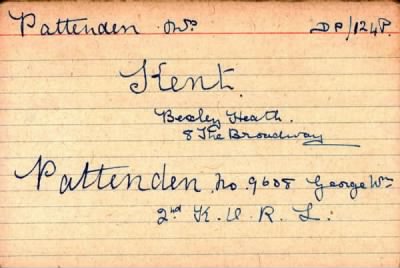 Pattenden Mrs DP/124P.
Kent.
Bexley Heath.
8 The Broadway
Pattenden. No. 9608 George Wm
2nd K. O. R. L.